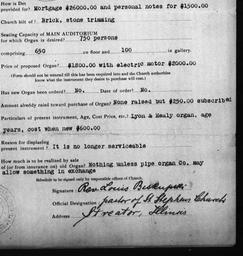 How is Debt
provided for? Mortgage $26000.00 and personal notes for $1500.00
Church bilt of? Brick, stone trimming
Seating Capacity of MAIN AUDITORIUM
for which Organ is desired? 750 persons
comprising 650 on floor and 100 in gallery.
Price of proposed Organ? $1800.00 with electric motor $2000.00
(Form should not be entered till this has been inquired into and the Church authorities
know what the instrument they desire to purchase will cost.)
Has new Organ been ordered? No. Date of order? No.
Amount already raised toward purchase of Organ? None raised but $250.00 subscribed
Particulars of present instrument, Age, Cost Price, etc.? Lyon & Healy organ, age
years, cost when new $600.00
Reason for displacing
present instrument? It is no longer serviceable
How much is to be realized by sale
of (or from insurance on) old Organ? Nothing unless pipe organ Co. may
allow something in exchange
Schedule to be signed only by responsible officer of Church.
Signature Rev. Louis
Official Designation pastor of St Stephens Church
Address Streator, Illinois